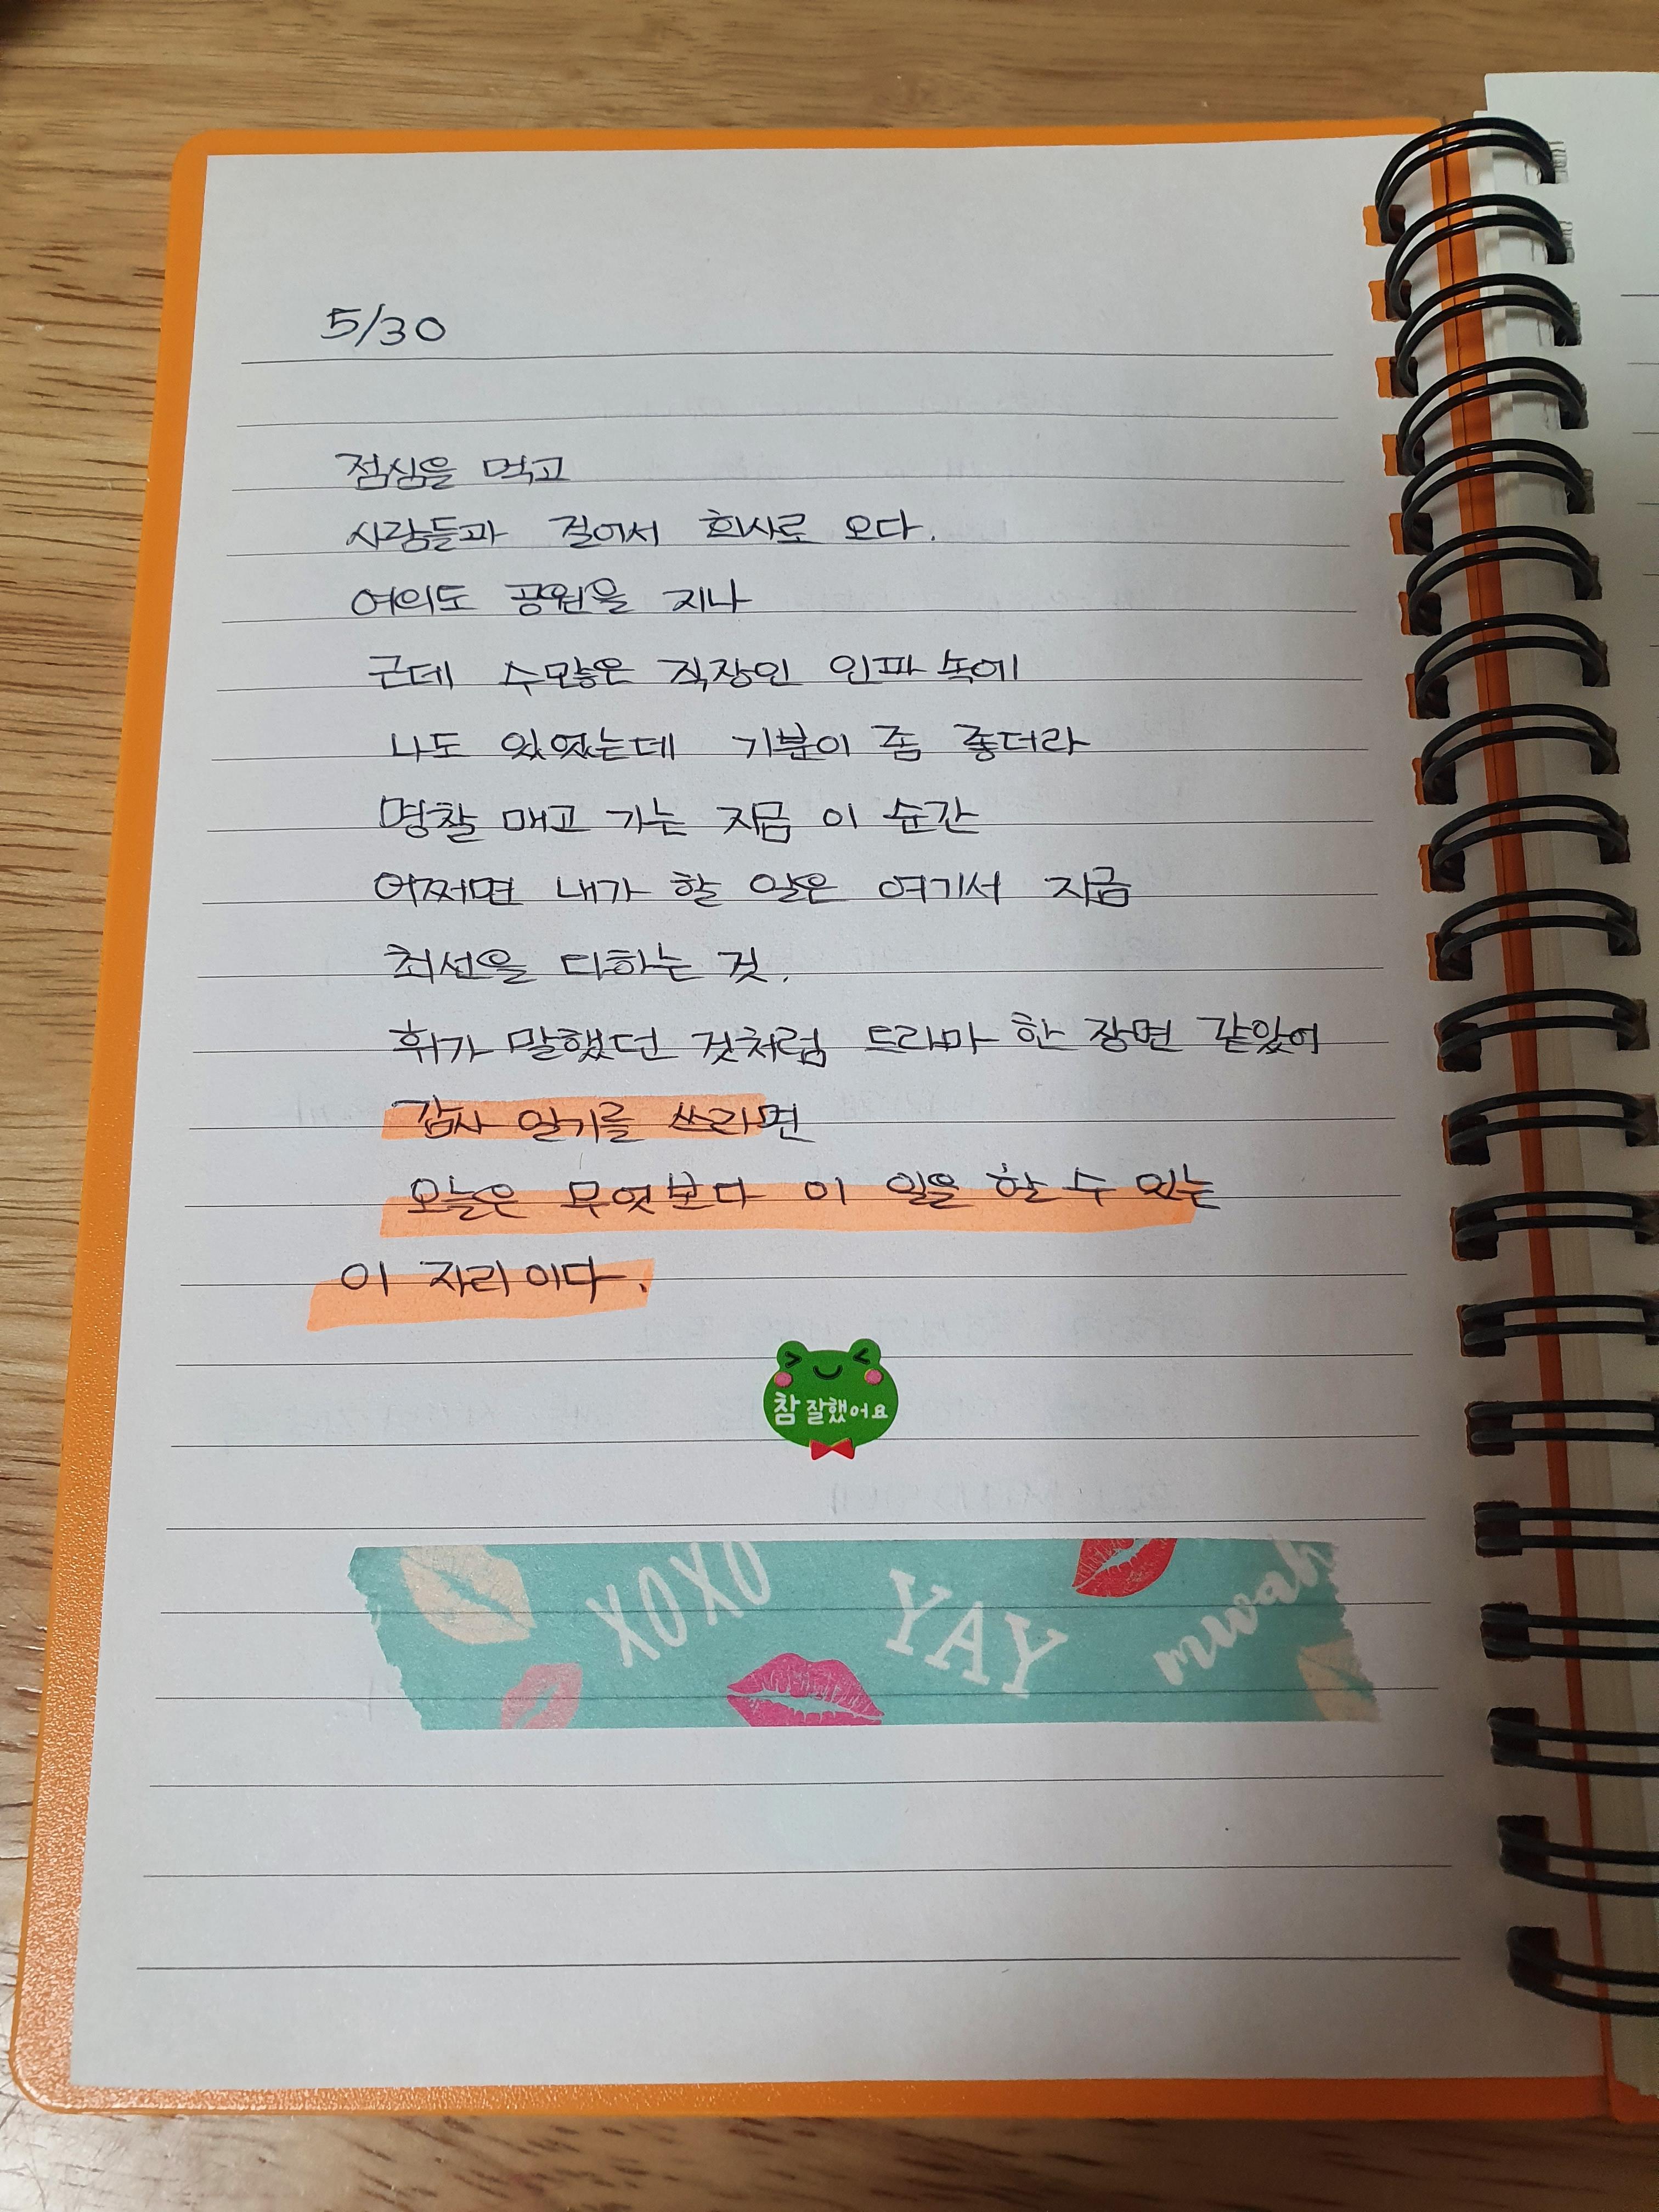 5/30
점심을 먹고
사람들과 걸어서 회사로 오다.
여의도 공원을 지나
근데 수많은 직장인 인파 속에
나도 있었는데 기분이 좀 좋더라
명찰 매고 가는 지금 이 순간
어쩌면 내가 할 일은 여기서 지금
최선을 다하는 것.
휘가 말했던 것처럼 드라마 한 장면 같았어
감사 일기를 쓰라면
오늘은 무엇보다 이 일을 할 수 있는
이 자리이다.
참 잘했어요
XOXO YAY mwah